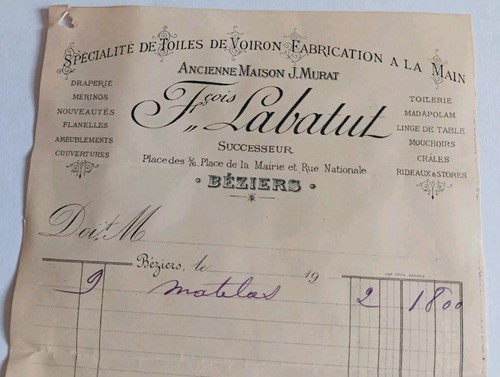 SPÉCIALITÉ DE TOILES DE VOIRON FABRICATION A LA MAIN
ANCIENNE MAISON J. MURAT
Fçois Labatut
SUCCESSEUR
Place des 3/6, Place de la Mairie et Rue Nationale
BÉZIERS
DRAPERIE
MÉRINOS
NOUVEAUTÉS
FLANELLES
AMEUBLEMENTS
COUVERTURES
TOILERIE
MADAPOLAM
LINGE DE TABLE
MOUCHOIRS
CHÂLES
RIDEAUX & STORES
Doit M
Béziers, le 19
9 matelas 2 18 00